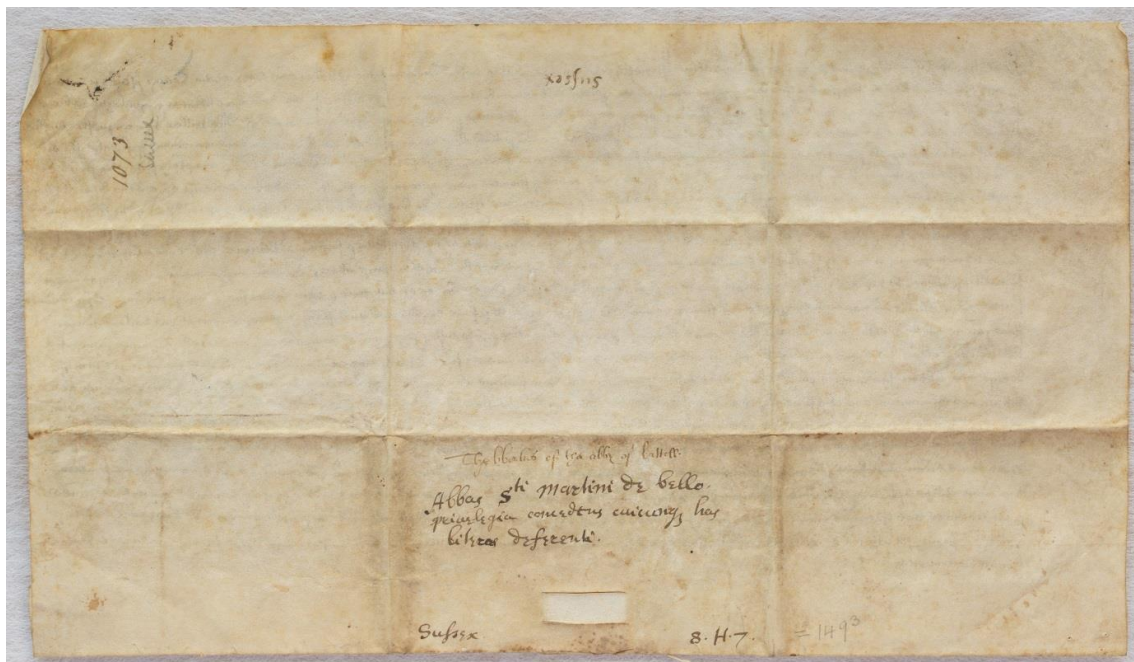 Sussex
1073
Sussex
The libertes of the abby of battell.
Abbas Sti Martini de bello.
privelegia concedens cuicunqȝ has
literas deferenti.
Sussex 8. H. 7. = 149³